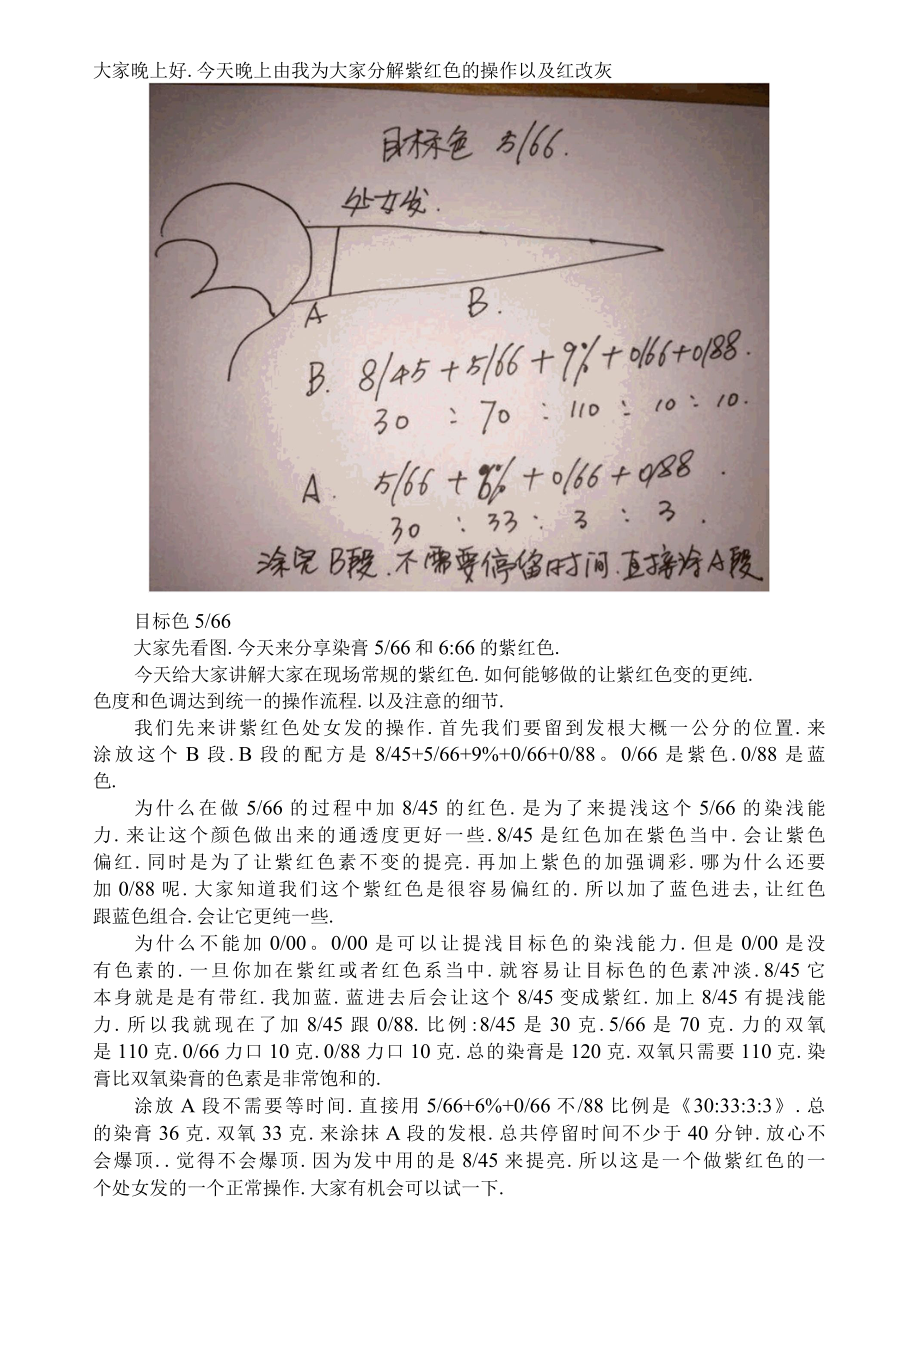 大家晚上好. 今天晚上由我为大家分解紫红色的操作以及红改灰
目标色 5/66.
处女发.
A B.
B. 8/45+5/66+9%+0/66+0/88.
30 : 70 : 110 : 10 : 10.
A. 5/66+6%+0/66+0/88.
30 : 33 : 3 : 3.
涂完B段.不需要停留时间.直接涂A段
目标色 5/66
大家先看图. 今天来分享染膏 5/66 和 6:66 的紫红色.
今天给大家讲解大家在现场常规的紫红色. 如何能够做的让紫红色变的更纯.
色度和色调达到统一的操作流程. 以及注意的细节.
我们先来讲紫红色处女发的操作. 首先我们要留到发根大概一公分的位置. 来
涂放这个 B 段. B 段的配方是 8/45+5/66+9%+0/66+0/88。0/66 是紫色. 0/88 是蓝
色.
为什么在做 5/66 的过程中加 8/45 的红色. 是为了来提浅这个 5/66 的染浅能
力. 来让这个颜色做出来的通透度更好一些. 8/45 是红色加在紫色当中. 会让紫色
偏红. 同时是为了让紫红色素不变的提亮. 再加上紫色的加强调彩. 哪为什么还要
加 0/88 呢. 大家知道我们这个紫红色是很容易偏红的. 所以加了蓝色进去, 让红色
跟蓝色组合. 会让它更纯一些.
为什么不能加 0/00。0/00 是可以让提浅目标色的染浅能力. 但是 0/00 是没
有色素的. 一旦你加在紫红或者红色系当中. 就容易让目标色的色素冲淡. 8/45 它
本身就是是有带红. 我加蓝. 蓝进去后会让这个 8/45 变成紫红. 加上 8/45 有提浅能
力. 所以我就现在了加 8/45 跟 0/88. 比例:8/45 是 30 克. 5/66 是 70 克. 力的双氧
是 110 克. 0/66 力口 10 克. 0/88 力口 10 克. 总的染膏是 120 克. 双氧只需要 110 克. 染
膏比双氧染膏的色素是非常饱和的.
涂放 A 段不需要等时间. 直接用 5/66+6%+0/66 不/88 比例是《30:33:3:3》. 总
的染膏 36 克. 双氧 33 克. 来涂抹 A 段的发根. 总共停留时间不少于 40 分钟. 放心不
会爆顶. . 觉得不会爆顶. 因为发中用的是 8/45 来提亮. 所以这是一个做紫红色的一
个处女发的一个正常操作. 大家有机会可以试一下.